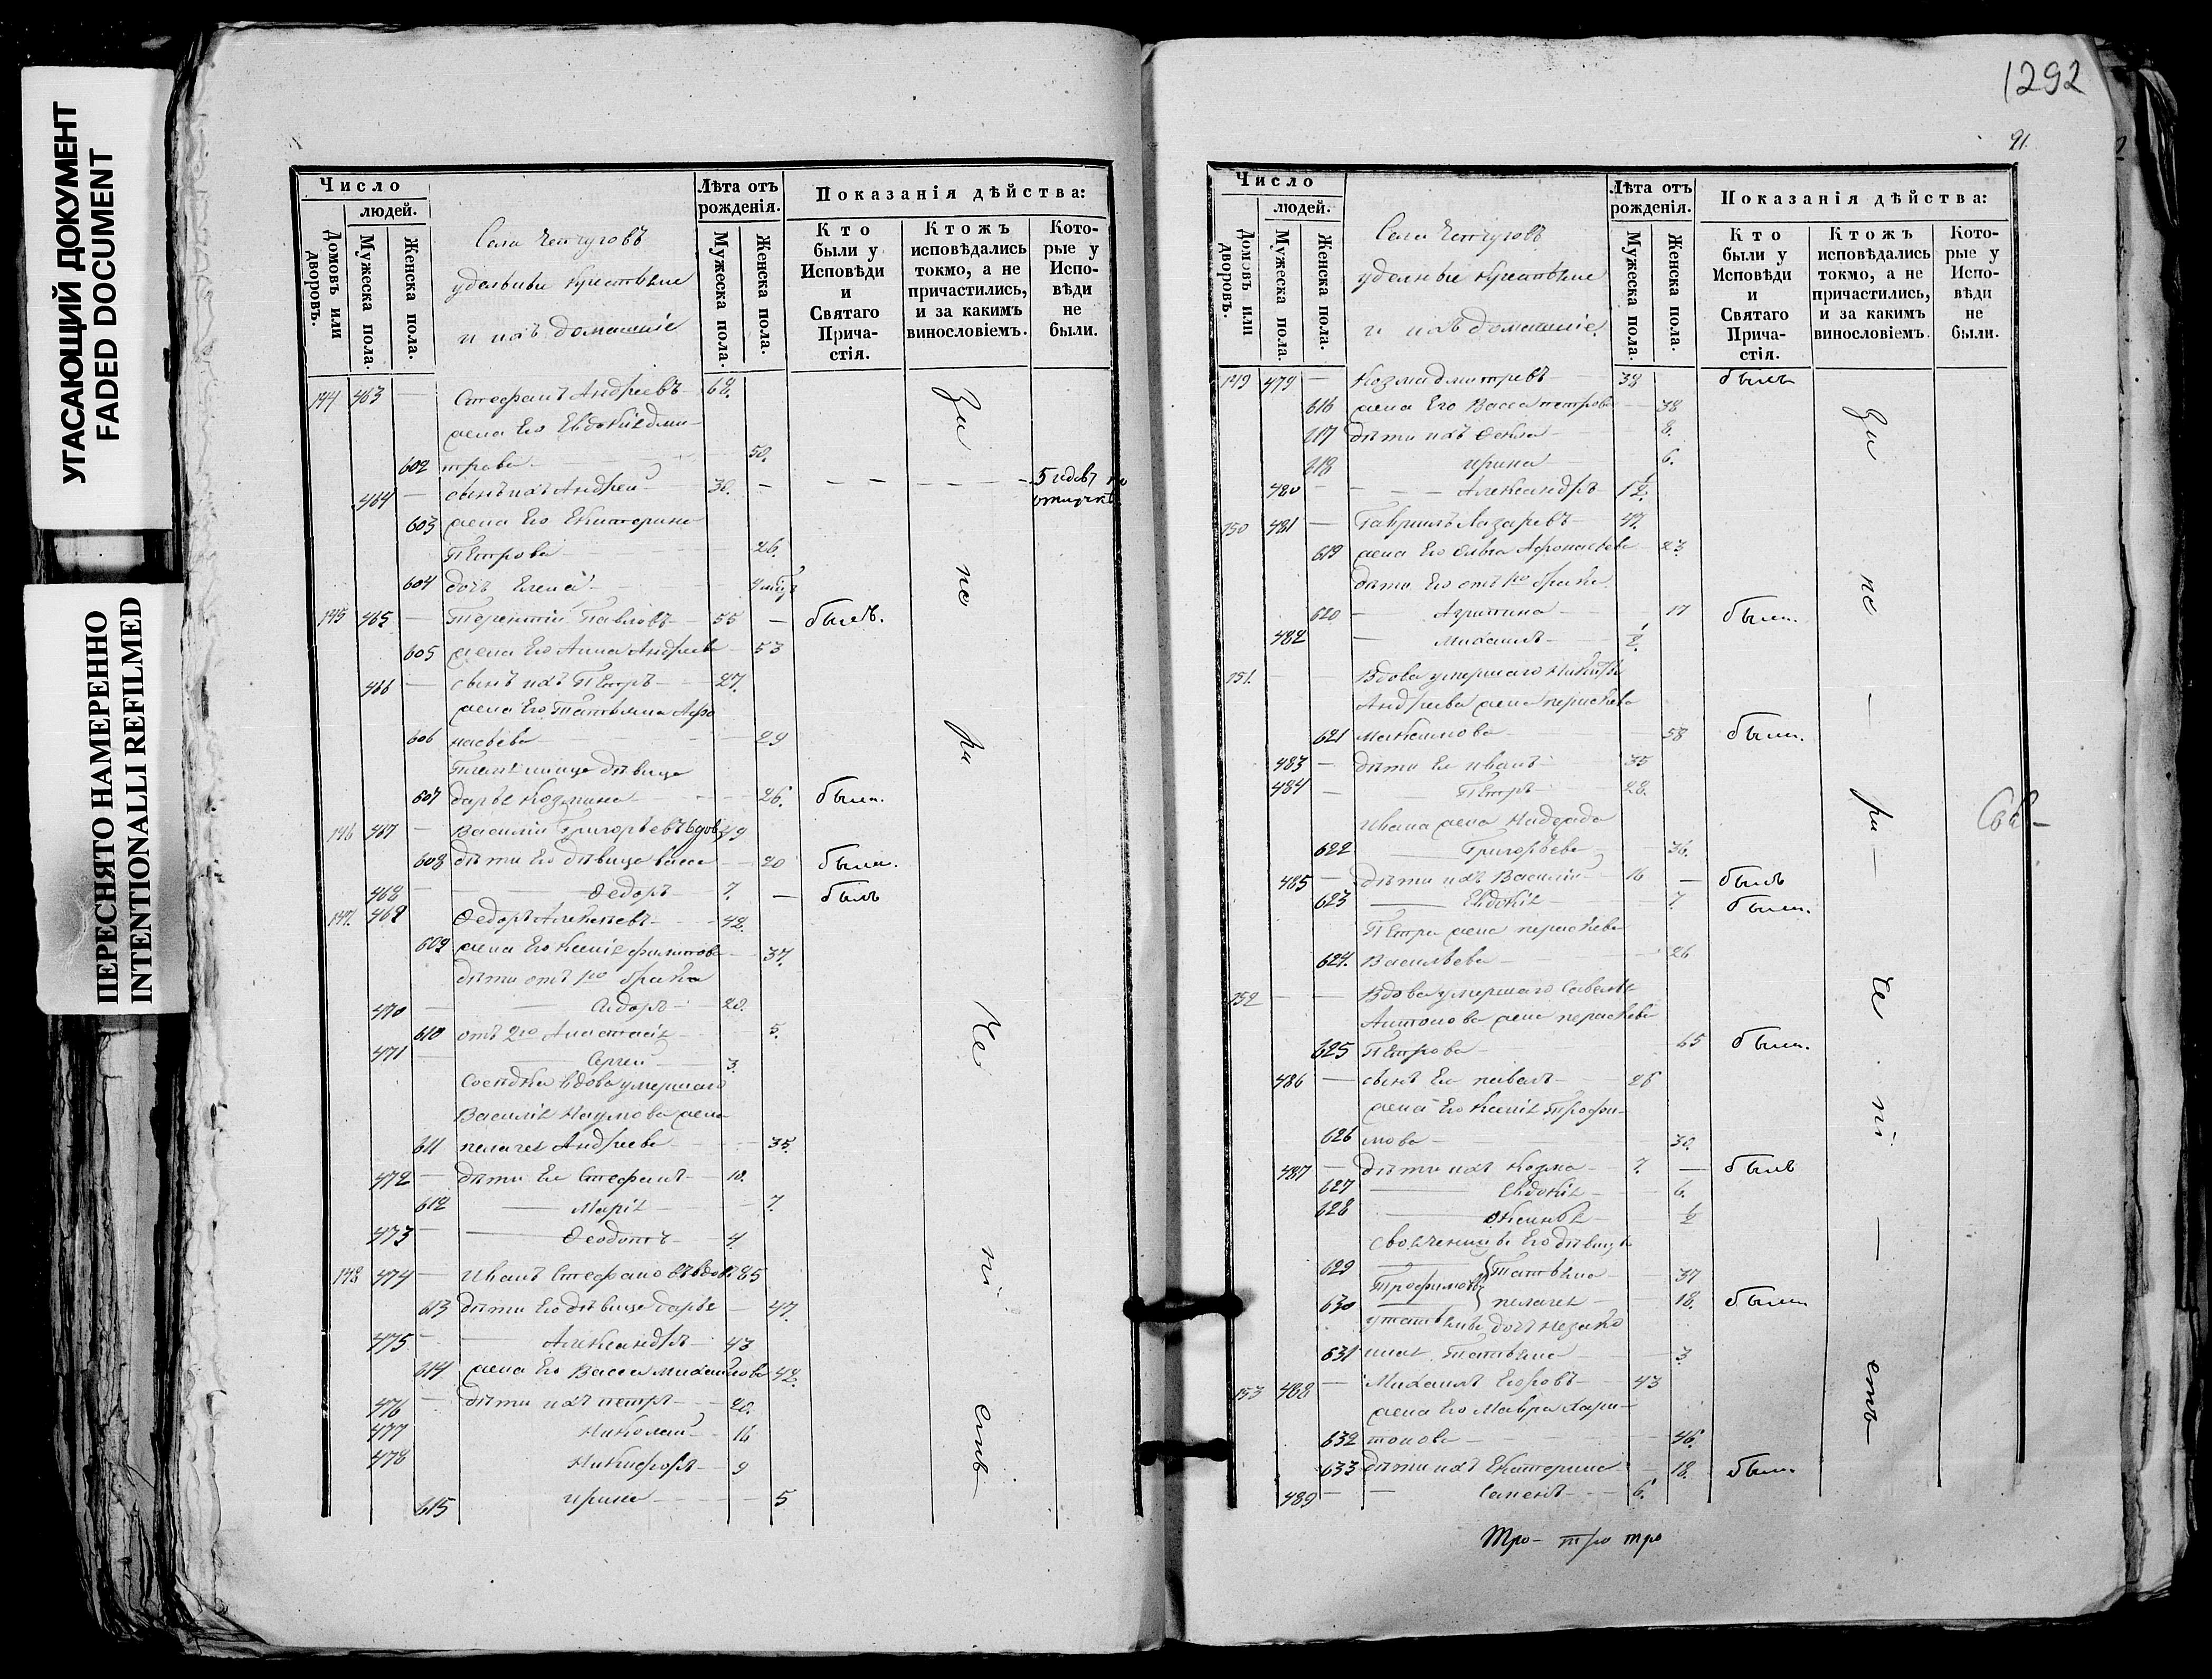 УГАСАЮЩИЙ ДОКУМЕНТ
FADED DOCUMENT
ПЕРЕСНЯТО НАМЕРЕННО
INTENTIONALLI REFILMED
Число
людей.
Домовъ или дворовъ.
Мужеска пола.
Женска пола.
Села
удельные крестьяне
и ихъ домашніе
Лѣта отъ рожденія.
Мужеска пола.
Женска пола.
Показанія дѣйства:
Кто были у Исповѣди и Святаго Прича-стія.
Ктожъ исповѣдались токмо, а не причастились, и за какимъ винословіемъ.
Кото-рые у Испо-вѣди не были.
144 463 — Стефанъ Андреевъ — 68.
жена Его Евдокія дми-
602 трова — 50.
464 — сынъ ихъ Андрей — 30. — 5 годовъ
603 жена Его Екатерина
Петрова — 26.
604 дочь Елена —
145 465 — Терентій Павловъ — 55 — былъ.
605 жена Его Анна Андреева — 53
466 — сынъ ихъ Петръ — 27.
жена Его Татьяна Афо
606 насьева — 29
дѣвица
607 дарья Козмина — 26. была.
146 467 — Василій Григорьевъ вдовъ 49
608 дѣти Его дѣвица васса — 20 была.
468 — Ѳедоръ — 7. — былъ
147. 469 Ѳедоръ Алексѣевъ — 42.
609 жена Его Ксенія филипова — 37.
дѣти отъ 1го брака
470 — Сидоръ — 20.
610 отъ 2го Анастасія — 5.
471 — Сергей — 3.
Соседка вдова умершаго
Василія Наумова жена
611 пелагея Андреева — 35.
472 — дѣти Ея Стефанъ — 10.
612 — Марія — 7.
473 — Ѳеодотъ — 4.
148 474 — Иванъ Стефановъ вдовъ 65
613 дѣти Его дѣвица дарья — 47.
475 — Александръ — 43
614 жена Его Васса михайлова 42.
476 — дѣти ихъ петръ — 20.
477 Николай — 16
478 Никифоръ — 9
615 ирина — 5
За
не
ра
че
ні
емъ
1292
91.
Число
людей.
Домовъ или дворовъ.
Мужеска пола.
Женска пола.
Села
удельные крестьяне
и ихъ домашніе
Лѣта отъ рожденія.
Мужеска пола.
Женска пола.
Показанія дѣйства:
Кто были у Исповѣди и Святаго Прича-стія.
Ктожъ исповѣдались токмо, а не причастились, и за какимъ винословіемъ.
Кото-рые у Испо-вѣди не были.
149 479 — Козма дмитревъ — 38 былъ
616 жена Его Васса петрова — 38
617 дѣти ихъ Ѳекла — 8.
618 ирина — 6.
480 — Александръ — 1½.
150 481 — Гаврилъ Лазаревъ — 47.
619 жена Его Ольга Афонасьева — 23
дѣти Его отъ 1го брака
620 — Агрипина — 17 была.
482 — Михаилъ — ½.
151. — Вдова умершаго Никиты
Андреева жена параскева
621 Максимова — 58 была.
483 — дѣти Ея иванъ — 35
484 — Петръ — 28.
Ивана жена Надежда
622 Григорьева — 36.
485 — дѣти ихъ Василій — 16 — былъ
623 — Евдокія — 7. была.
Петра жена параскева
624. Васильева — 26
152 — Вдова умершаго Савелья
Антонова жена параскева
625 Петрова — 65 была.
486 — сынъ Ея павелъ — 25
жена Его Ксенія Трофи-
626 мова — 30.
487 — дѣти ихъ Козма — 7. — былъ
627 — Евдокія — 6.
628 — — ½
своячениць Его дѣвицы
629 Трофимовы Татьяна — 37
630 пелагея — 18. была
у татьяны дочь незако
631 ная Татьяна — 3
153 488 — Михаилъ Егоровъ — 43
жена Его Мавра Хари-
632 тонова — 46.
633 дѣти ихъ Екатерина — 18. была.
489 — Семенъ — 6.
За
не
ра
че
ні
емъ
Тро- тро тро